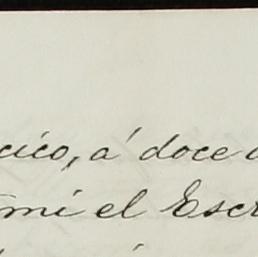 cico, á doce
mi el Escr